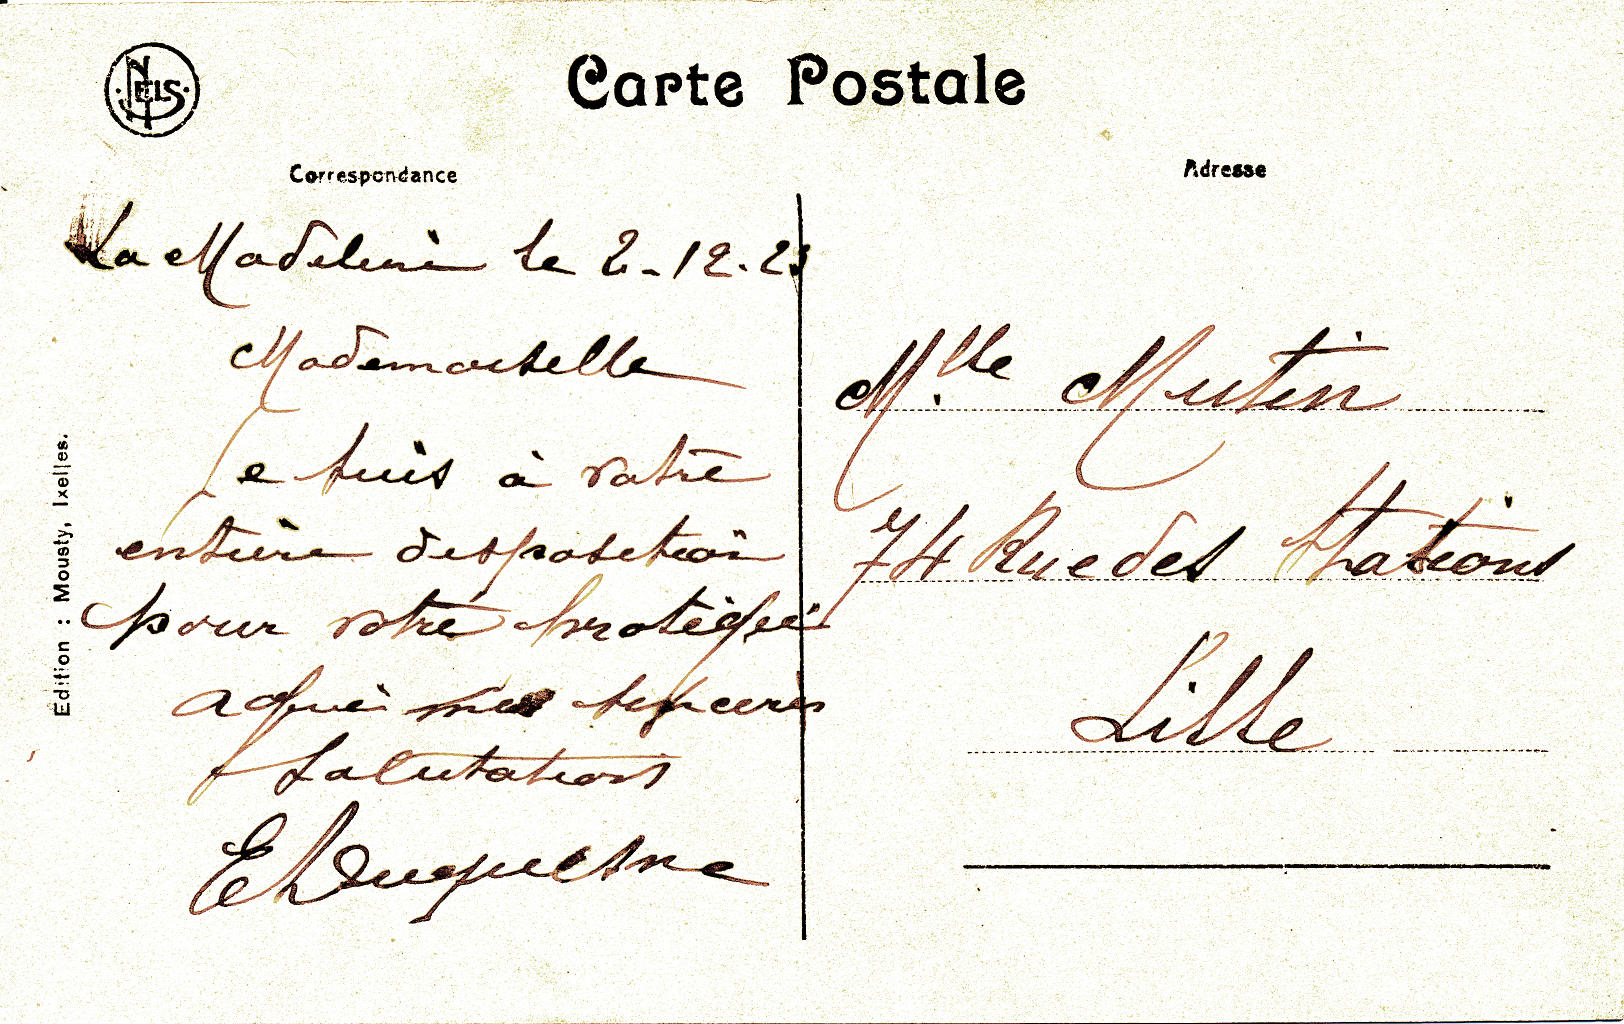 NELS
Carte Postale
Correspondance
La Madeleine le 2-12.23
Mademoiselle
Je suis à votre
entière disposition
pour votre protégée
agréé mes sincères
Salutations
Eh Duquesne
Edition : Mousty, Ixelles.
Adresse
Mlle Mutin
74 Rue des Stations
Lille